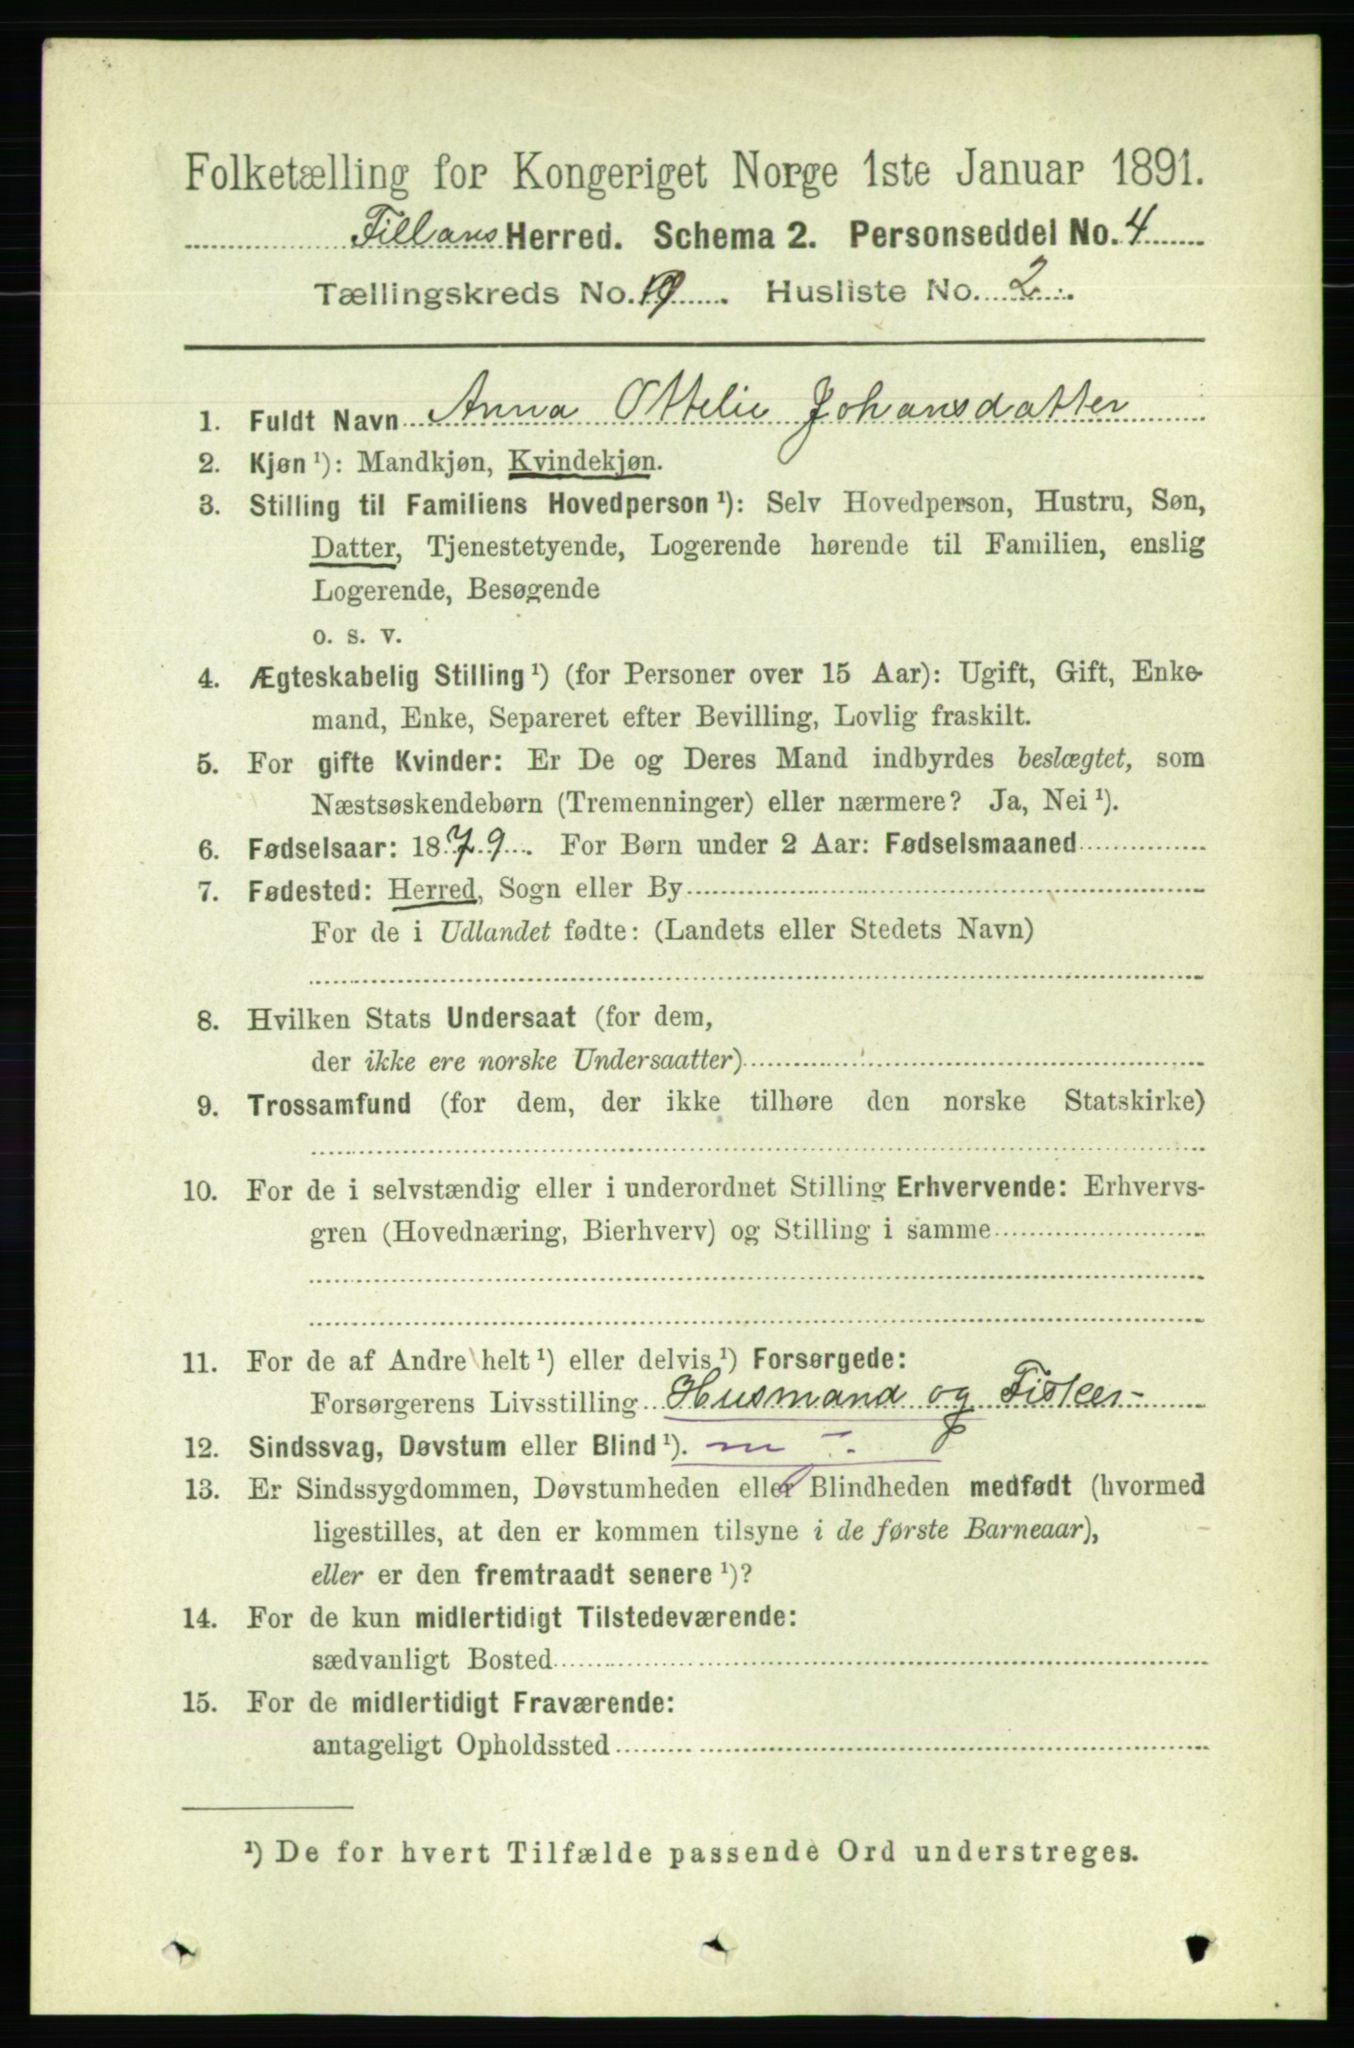 Folketælling for Kongeriget Norge 1ste Januar 1891.
Fillans Herred. Schema 2. Personseddel No. 4
Tællingskreds No. Husliste No. 2
1. Fuldt Navn Anna Ottelie Johansdatter
2. Kjøn ¹): Mandkjøn, Kvindekjøn.
3. Stilling til Familiens Hovedperson ¹): Selv Hovedperson, Hustru, Søn,
Datter, Tjenestetyende, Logerende hørende til Familien, enslig
Logerende, Besøgende
o. s. v.
4. Ægteskabelig Stilling ¹) (for Personer over 15 Aar): Ugift, Gift, Enke-
mand, Enke, Separeret efter Bevilling, Lovlig fraskilt.
5. For gifte Kvinder: Er De og Deres Mand indbyrdes beslægtet, som
Næstsøskendebørn (Tremenninger) eller nærmere? Ja, Nei ¹).
6. Fødselsaar: 1879. For Børn under 2 Aar: Fødselsmaaned
7. Fødested: Herred, Sogn eller By
For de i Udlandet fødte: (Landets eller Stedets Navn)
8. Hvilken Stats Undersaat (for dem,
der ikke ere norske Undersaatter)
9. Trossamfund (for dem, der ikke tilhøre den norske Statskirke)
10. For de i selvstændig eller i underordnet Stilling Erhvervende: Erhvervs-
gren (Hovednæring, Bierhverv) og Stilling i samme
11. For de af Andre helt ¹) eller delvis ¹) Forsørgede:
Forsørgerens Livsstilling Husmand og Fisker
12. Sindssvag, Døvstum eller Blind ¹).
13. Er Sindssygdommen, Døvstumheden eller Blindheden medfødt (hvormed
ligestilles, at den er kommen tilsyne i de første Barneaar),
eller er den fremtraadt senere ¹)?
14. For de kun midlertidigt Tilstedeværende:
sædvanligt Bosted
15. For de midlertidigt Fraværende:
antageligt Opholdssted
¹) De for hvert Tilfælde passende Ord understreges.